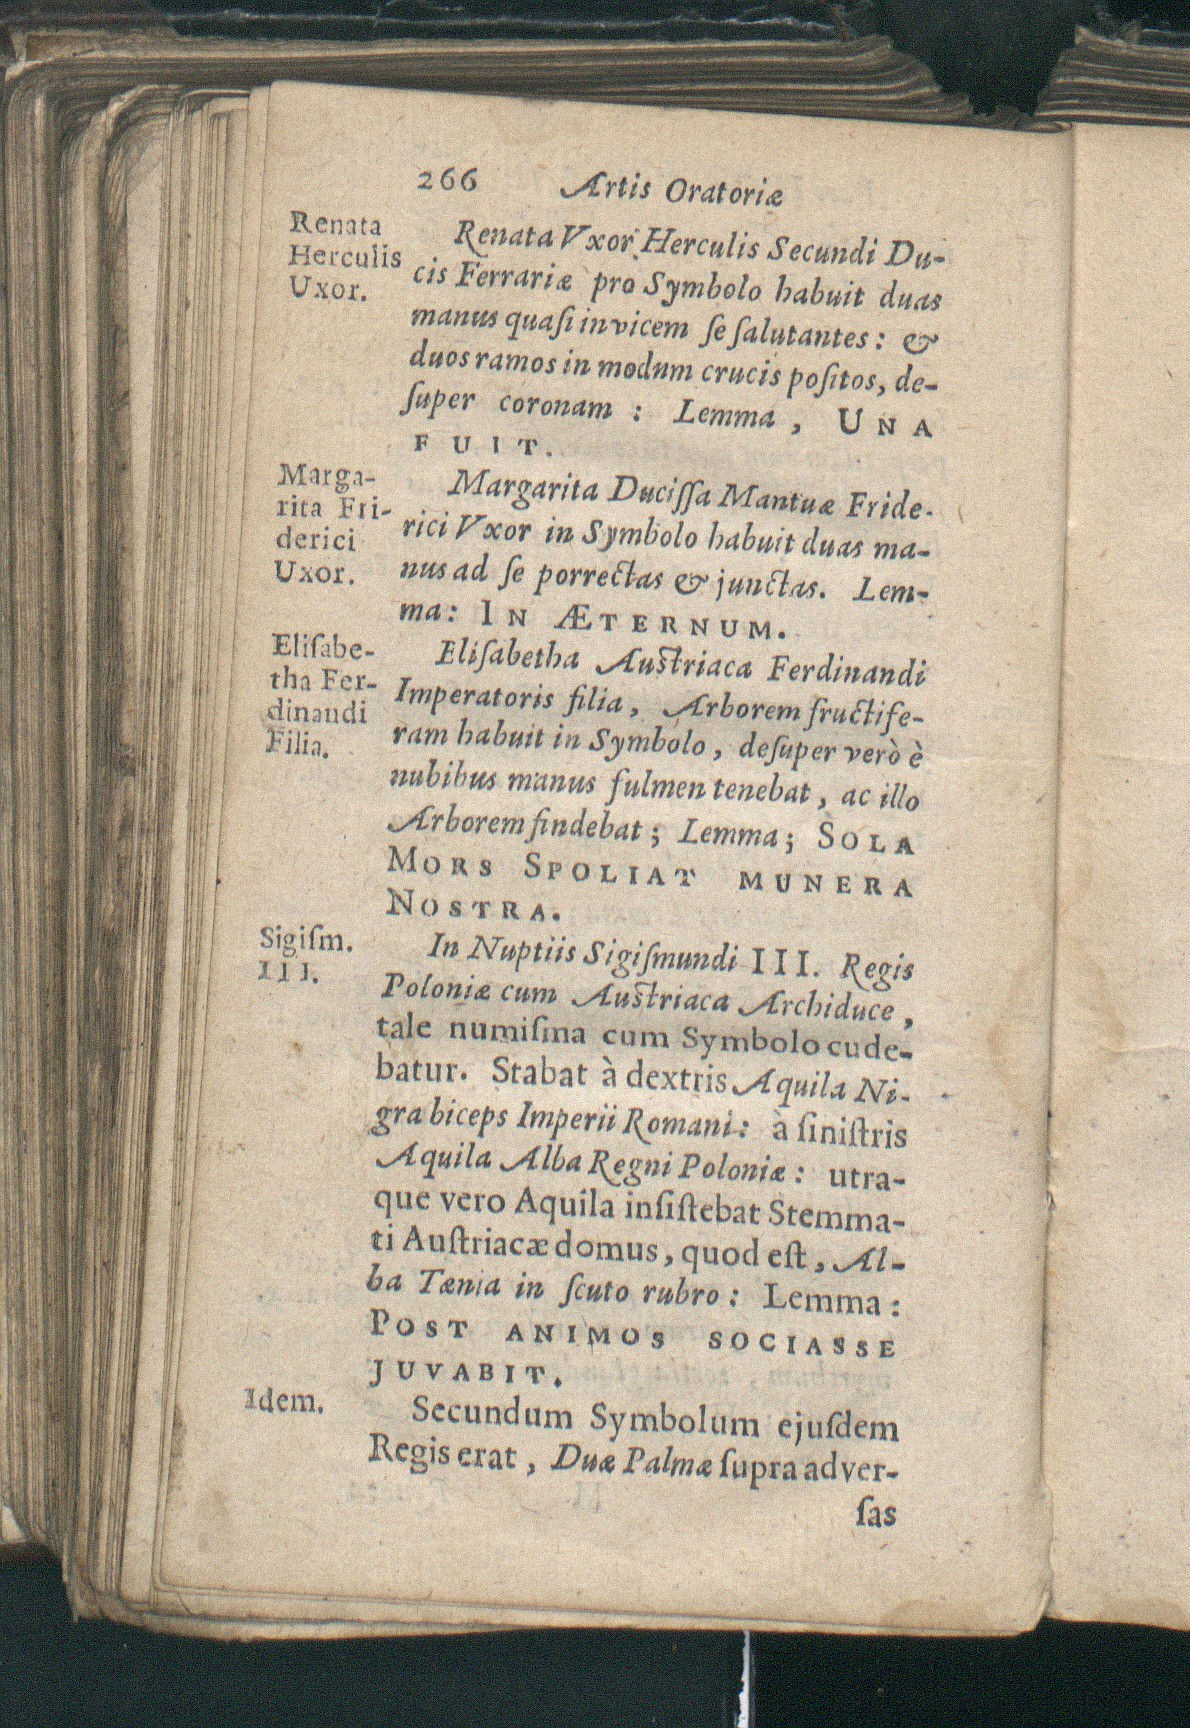 266 Artis Oratoriæ
Renata
Herculis
Uxor.
Renata Vxor Herculis Secundi Du-
cis Ferrariæ pro Symbolo habuit duas
manus quaſi invicem ſe ſalutantes: &
duos ramos in modum crucis poſitos, de-
ſuper coronam : Lemma , UNA
FUIT.
Marga-
rita Fri-
derici
Uxor.
Margarita Duciſſa Mantuæ Fride-
rici Vxor in Symbolo habuit duas ma-
nus ad ſe porrectas & junctas. Lem-
ma: IN ÆTERNUM.
Eliſabe-
tha Fer-
dinandi
Filia.
Eliſabetha Auſtriaca Ferdinandi
Imperatoris filia, Arborem fructife-
ram habuit in Symbolo, deſuper verò è
nubibus manus fulmen tenebat, ac illo
Arborem findebat; Lemma; SOLA
MORS SPOLIAT MUNERA
NOSTRA.
Sigiſm.
III.
In Nuptiis Sigiſmundi III. Regis
Poloniæ cum Auſtriaca Archiduce,
tale numiſma cum Symbolo cude-
batur. Stabat à dextris Aquila Ni-
gra biceps Imperii Romani: à ſiniſtris
Aquila Alba Regni Poloniæ: utra-
que vero Aquila inſiſtebat Stemma-
ti Auſtriacæ domus, quod eſt, Al-
ba Tænia in ſcuto rubro: Lemma:
POST ANIMOS SOCIASSE
JUVABIT.
Idem.
Secundum Symbolum ejuſdem
Regis erat, Duæ Palmæ ſupra adver-
ſas